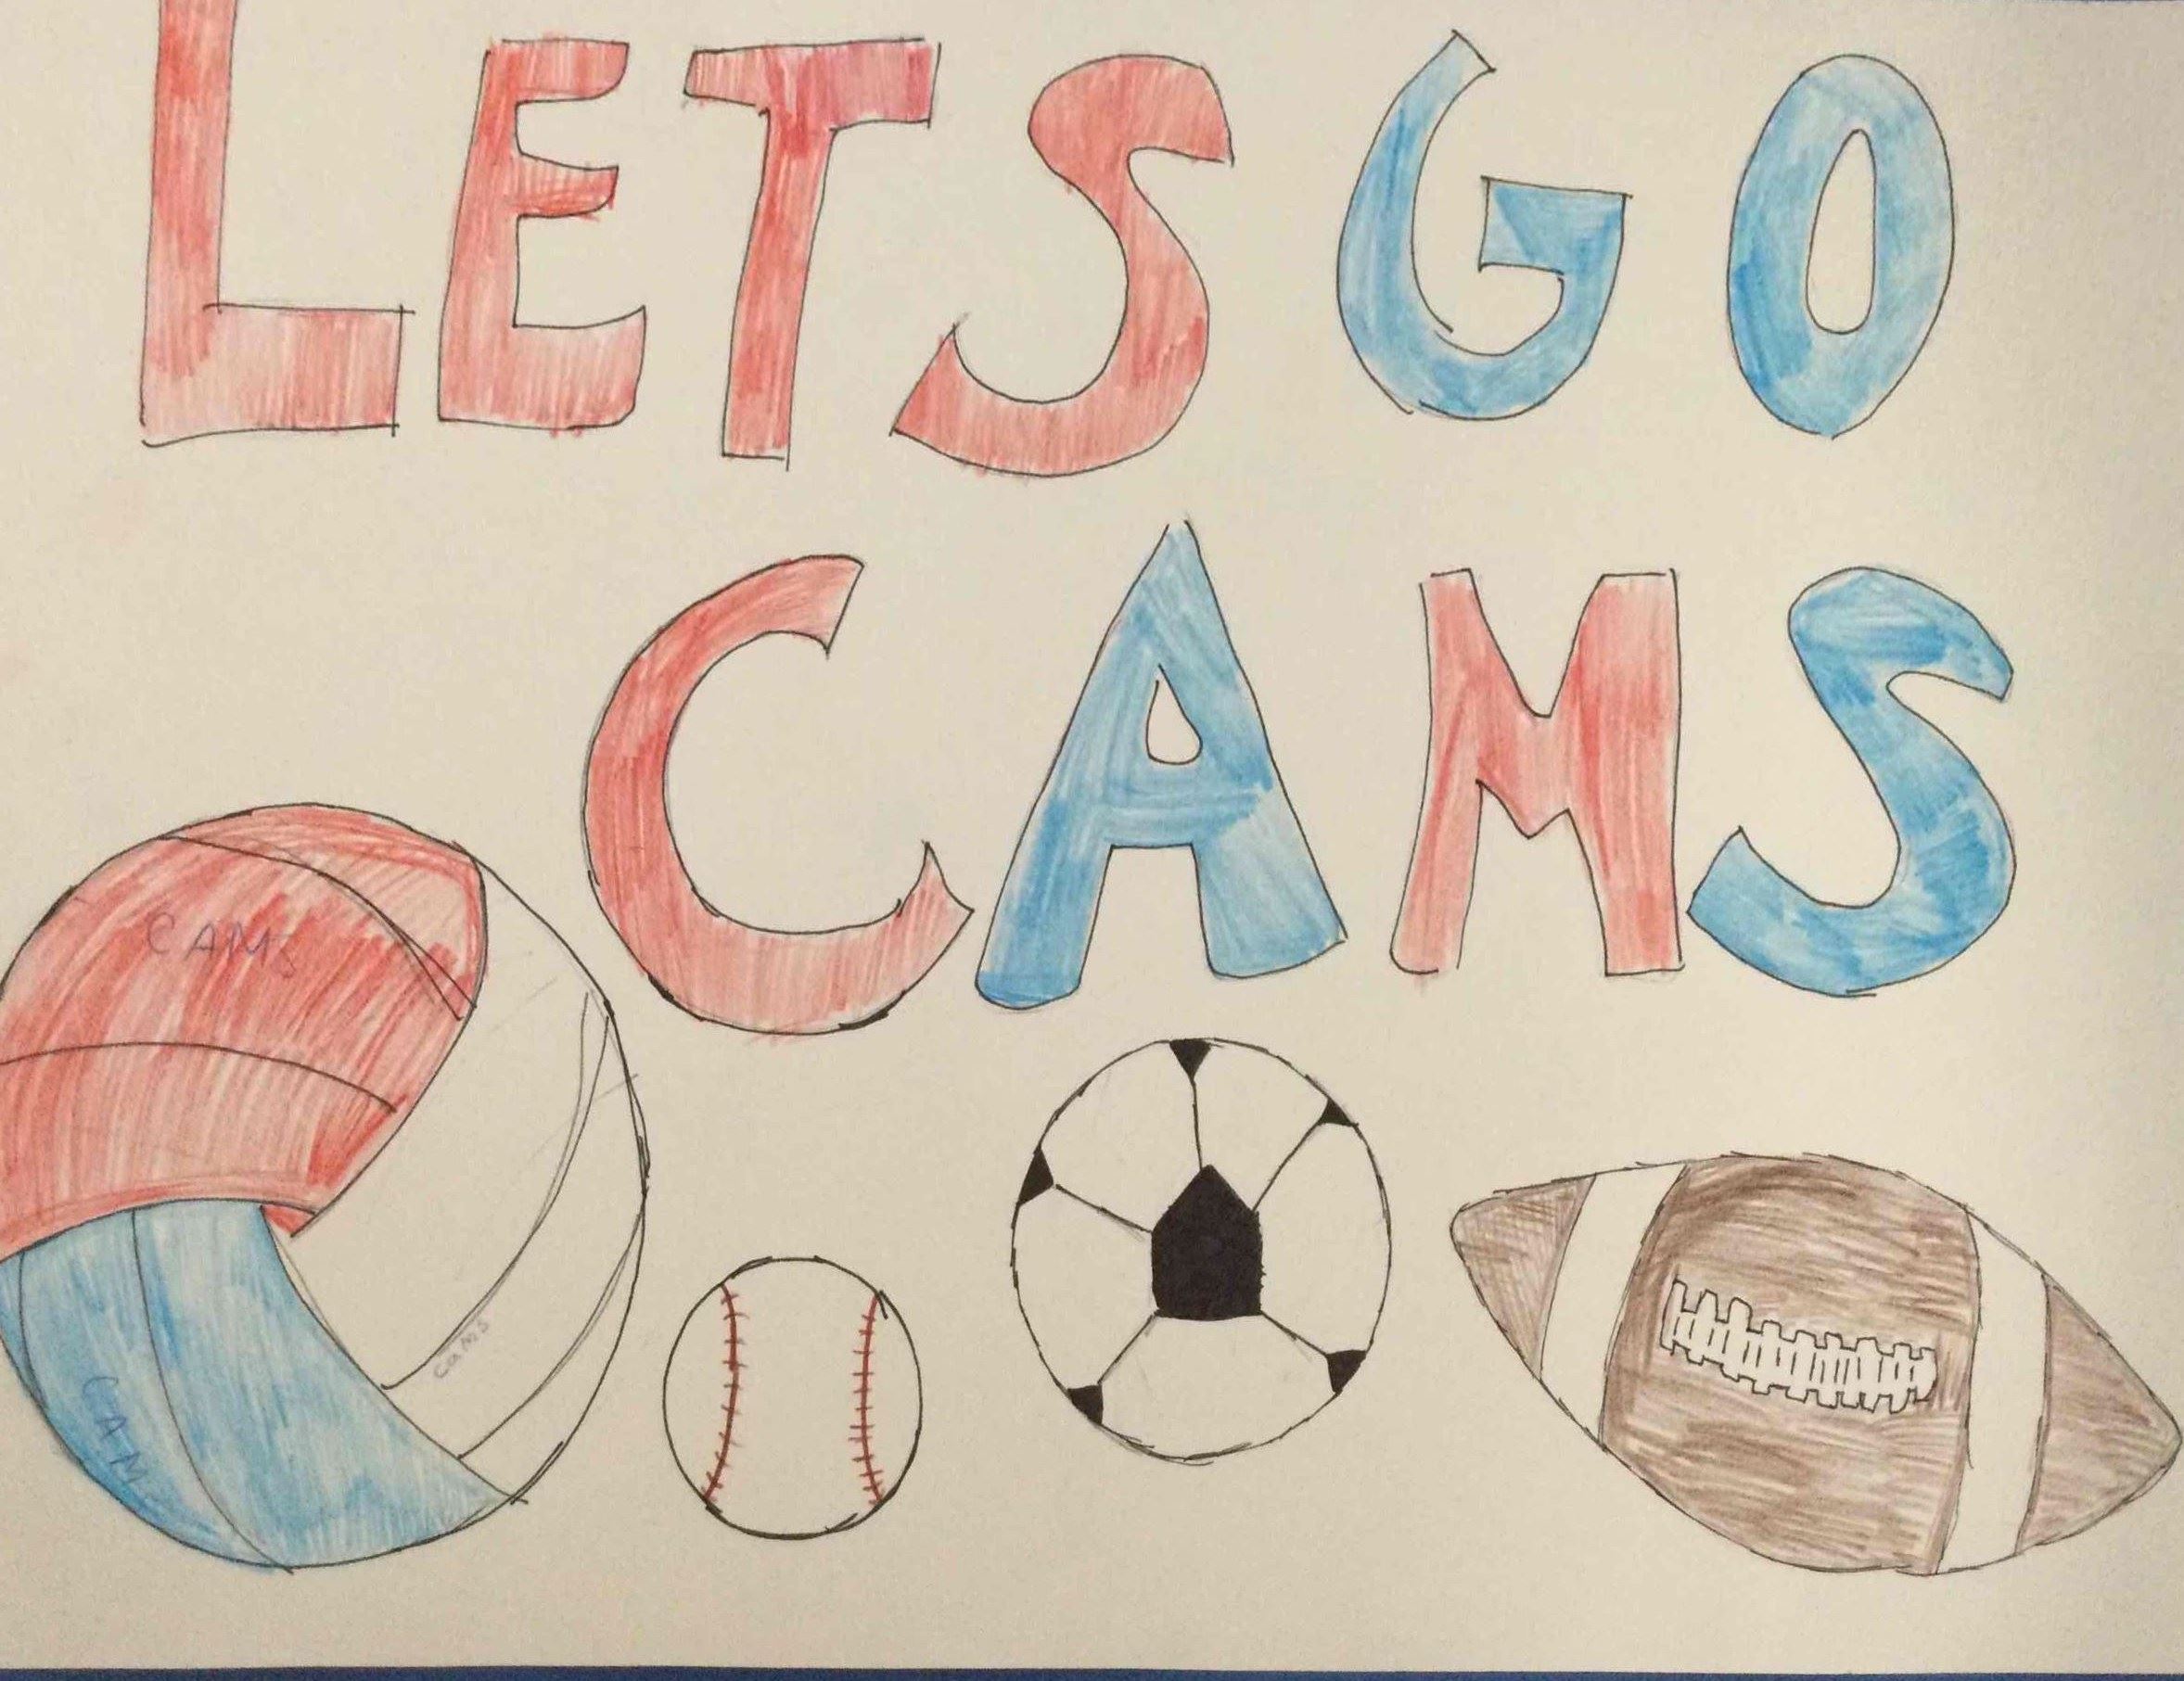 LETS GO
CAMS
CAMS
Cams
CAMS